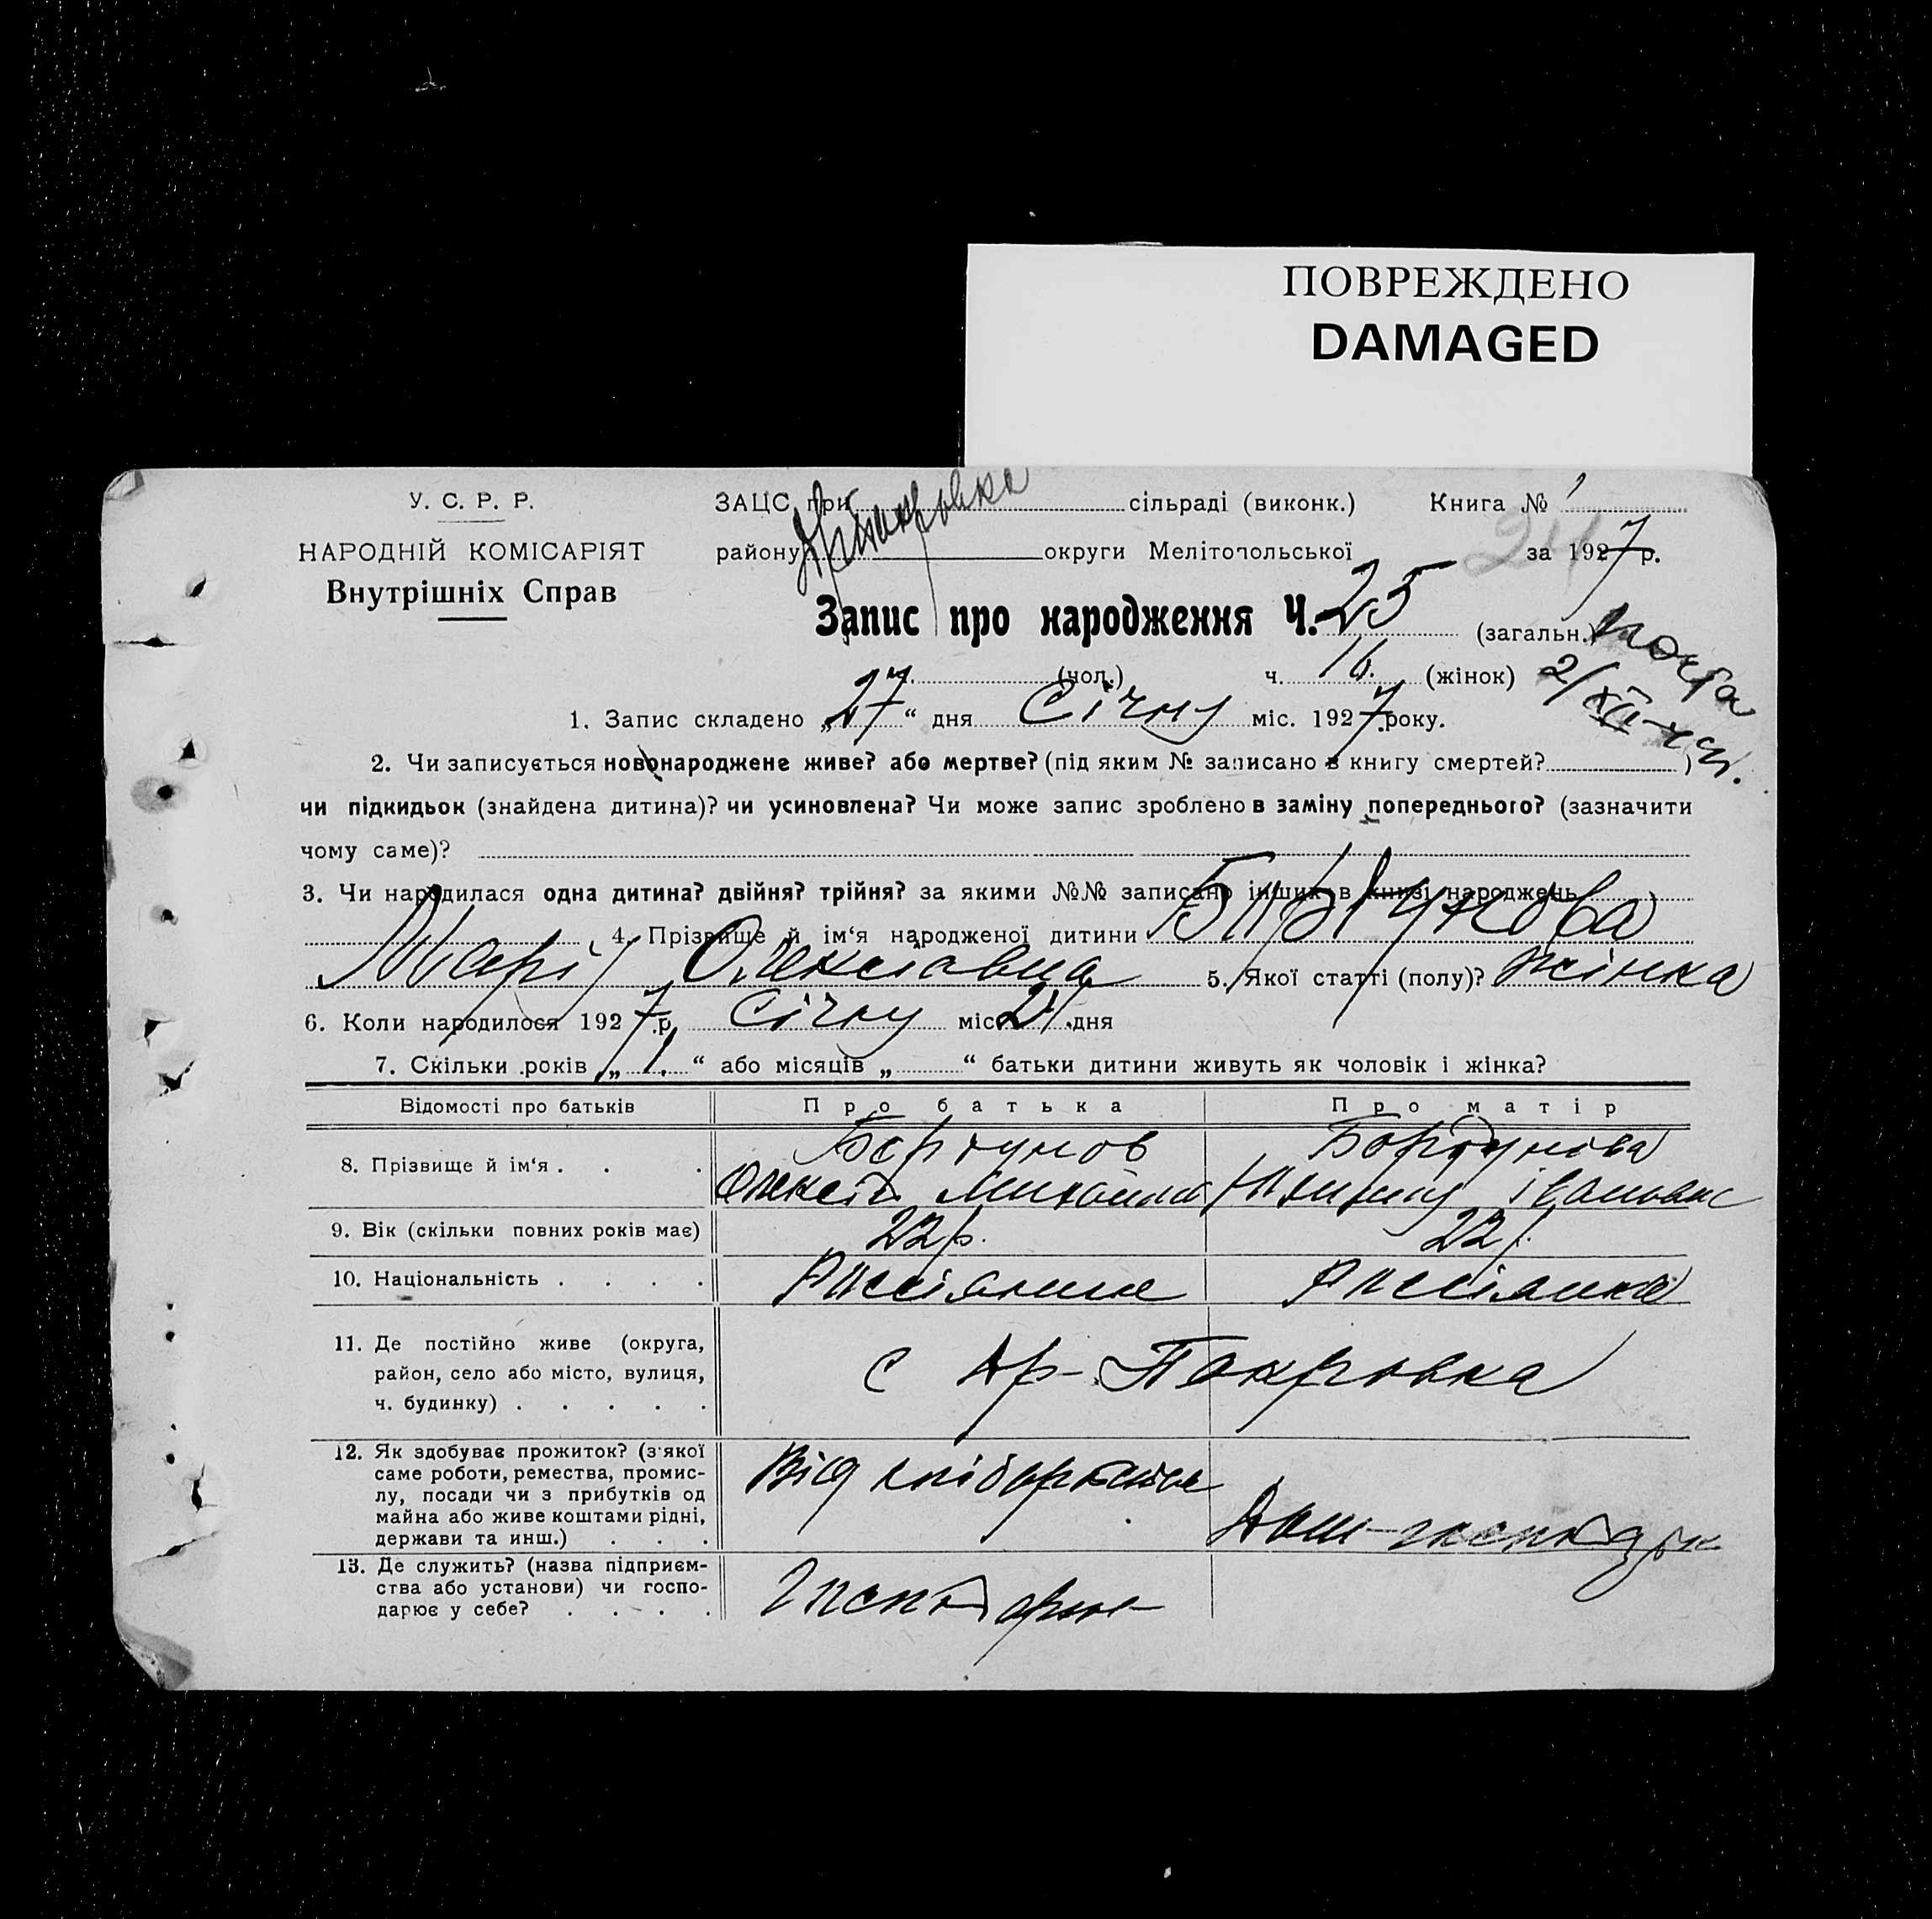 ПОВРЕЖДЕНО
DAMAGED
У. С. Р. Р.
НАРОДНІЙ КОМІСАРІЯТ
Внутрішніх Справ
ЗАЦС при сільраді (виконк.) Книга № 1
району округи Мелітопольської за 1927 р.
Запис про народження Ч. 25 (загальн.)
ч. (чол.) ч. 16. (жінок)
1. Запис складено „27“ дня Січну міс. 1927 року.
2. Чи записується новонароджене живе? або мертве? (під яким № записано в книгу смертей? )
чи підкидьок (знайдена дитина)? чи усиновлена? Чи може запис зроблено в заміну попереднього? (зазначити
чому саме)?
3. Чи народилася одна дитина? двійня? трійня? за якими №№ записано інших в книзі народжень
4. Прізвище й ім‘я народженої дитини
Марія Олексіавна 5. Якої статті (полу)? жінка
6. Коли народилося 1927 р. Січну міс. 21 дня
7. Скільки років „1.“ або місяців „ “ батьки дитини живуть як чоловік і жінка?
Відомості про батьків Про батька Про матір
8. Прізвище й ім‘я . . .
9. Вік (скільки повних років має) 22 р. 22 р.
10. Національність . . . . Руссіянин Руссіянка
11. Де постійно живе (округа,
район, село або місто, вулиця,
ч. будинку) . . . . .
с Ар-Покровка
12. Як здобуває прожиток? (з якої
саме роботи, ремества, промис-
лу, посади чи з прибутків од
майна або живе коштами рідні,
держави та инш.) . . .
Від
13. Де служить? (назва підприєм-
ства або установи) чи госпо-
дарює у себе? . . . .